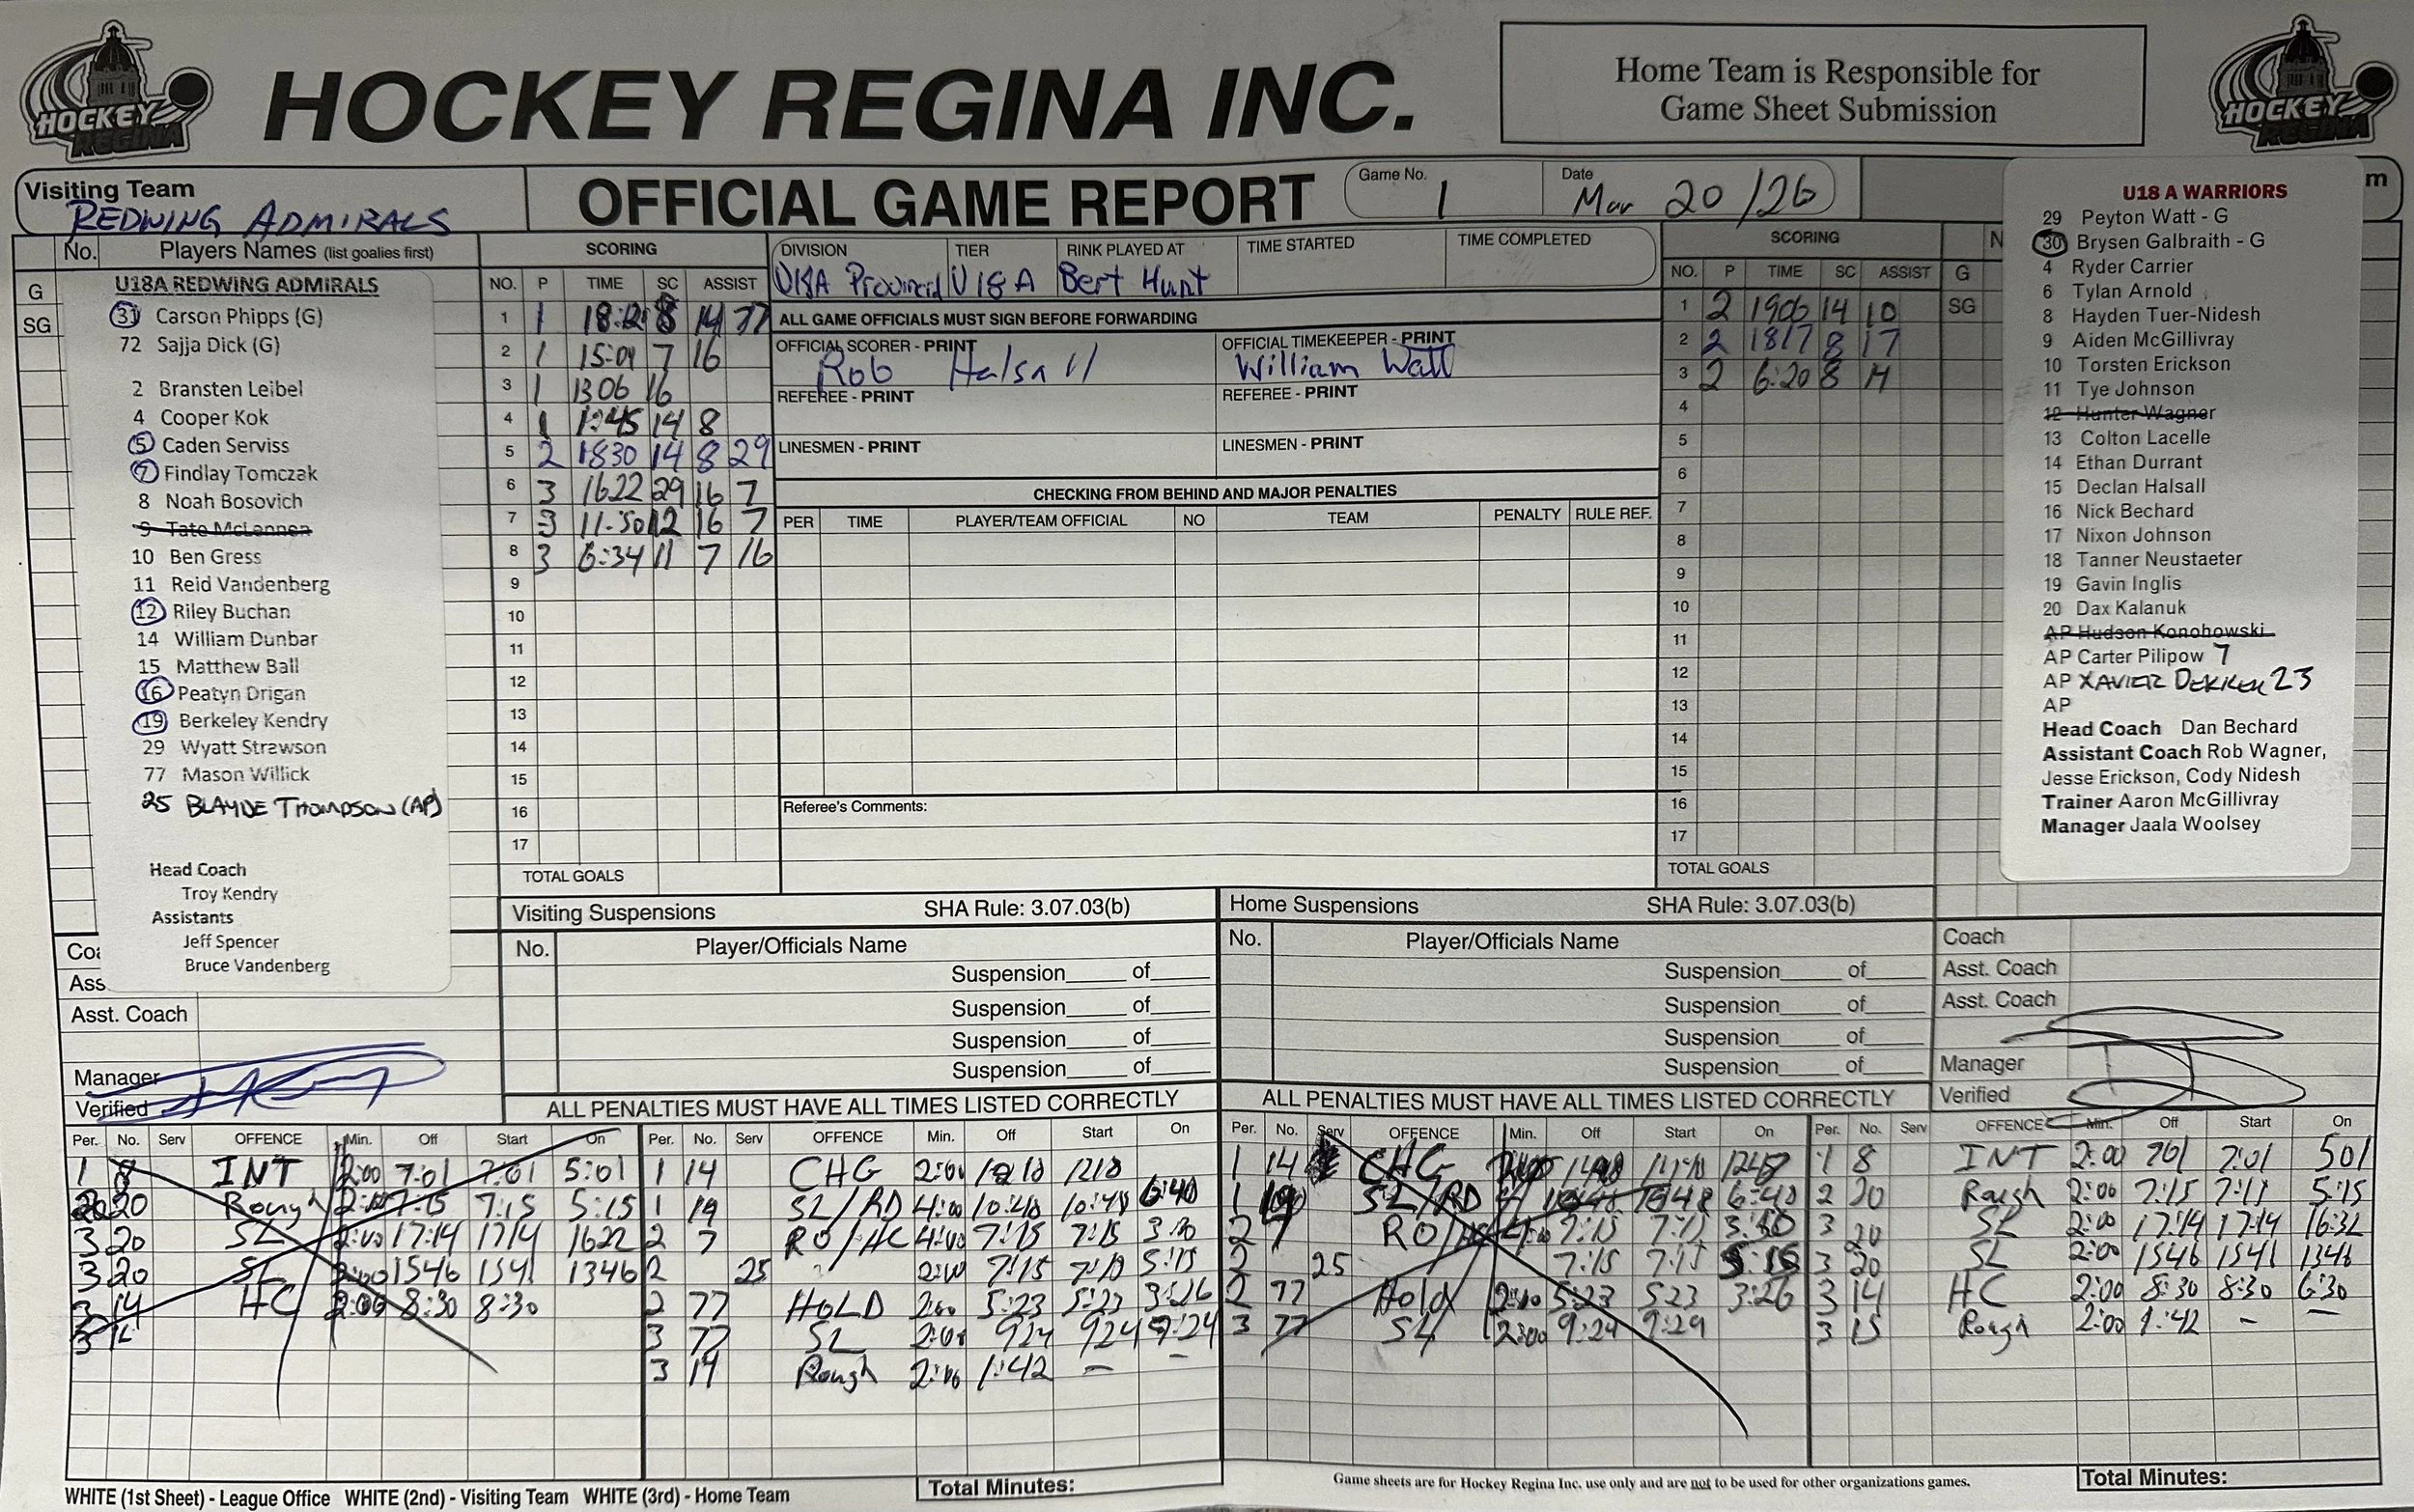 HOCKEY REGINA
HOCKEY REGINA INC.
Home Team is Responsible for
Game Sheet Submission
HOCKEY REGINA
Visiting Team
REDWING ADMIRALS
OFFICIAL GAME REPORT
Game No. 1
Date Mar 20/26
m
No. Players Names (list goalies first)
G
SG
U18A REDWING ADMIRALS
31 Carson Phipps (G)
72 Sajja Dick (G)
2 Bransten Leibel
4 Cooper Kok
5 Caden Serviss
7 Findlay Tomczak
8 Noah Bosovich
9 Tate McLennen
10 Ben Gress
11 Reid Vandenberg
12 Riley Buchan
14 William Dunbar
15 Matthew Ball
16 Peatyn Drigan
19 Berkeley Kendry
29 Wyatt Strawson
77 Mason Willick
25 BLAYDE THOMPSON (AP)
Head Coach
Troy Kendry
Assistants
Jeff Spencer
Bruce Vandenberg
Coa
Ass
Asst. Coach
Manager
Verified
SCORING
NO. P TIME SC ASSIST
1 1 8 14 77
2 1 15:01 7 16
3 1 1306 16
4 1 1:45 14 8
5 2 1830 14 8 29
6 3 1622 29 16 7
7 3 11:50 12 16 7
8 3 6:34 11 7 16
9
10
11
12
13
14
15
16
17
TOTAL GOALS
DIVISION TIER RINK PLAYED AT TIME STARTED TIME COMPLETED
U18A Provincial U18A Bert Hunt
ALL GAME OFFICIALS MUST SIGN BEFORE FORWARDING
OFFICIAL SCORER - PRINT OFFICIAL TIMEKEEPER - PRINT
Rob Halsall William Watt
REFEREE - PRINT REFEREE - PRINT
LINESMEN - PRINT LINESMEN - PRINT
CHECKING FROM BEHIND AND MAJOR PENALTIES
PER TIME PLAYER/TEAM OFFICIAL NO TEAM PENALTY RULE REF.
Referee's Comments:
SCORING
NO. P TIME SC ASSIST
1 2 1906 14 10
2 2 1817 8 17
3 2 6:20 8 14
4
5
6
7
8
9
10
11
12
13
14
15
16
17
TOTAL GOALS
N
G
SG
U18 A WARRIORS
29 Peyton Watt - G
30 Brysen Galbraith - G
4 Ryder Carrier
6 Tylan Arnold
8 Hayden Tuer-Nidesh
9 Aiden McGillivray
10 Torsten Erickson
11 Tye Johnson
12 Hunter Wagner
13 Colton Lacelle
14 Ethan Durrant
15 Declan Halsall
16 Nick Bechard
17 Nixon Johnson
18 Tanner Neustaeter
19 Gavin Inglis
20 Dax Kalanuk
AP Hudson Konohowski
AP Carter Pilipow 7
AP XAVIER DEKKER 23
AP
Head Coach Dan Bechard
Assistant Coach Rob Wagner,
Jesse Erickson, Cody Nidesh
Trainer Aaron McGillivray
Manager Jaala Woolsey
Visiting Suspensions SHA Rule: 3.07.03(b)
No. Player/Officials Name
Suspension of
Suspension of
Suspension of
Suspension of
Home Suspensions SHA Rule: 3.07.03(b)
No. Player/Officials Name
Suspension of
Suspension of
Suspension of
Suspension of
Coach
Asst. Coach
Asst. Coach
Manager
Verified
ALL PENALTIES MUST HAVE ALL TIMES LISTED CORRECTLY
Per. No. Serv OFFENCE Min. Off Start On
1 8 INT 2:00 7:01 7:01 5:01
20 Rough 7:15 7:15 5:15
3 20 SL 2:00 17:14 1714 1622
3 20 SL 2:00 1546 154 1346
3 14 HC 2:00 8:30 8:30
3
Per. No. Serv OFFENCE Min. Off Start On
1 14 CHG 2:00 1218
1 19 SL/RD 4:00 10:48 10:48 6:48
2 7 RO/HC 4:00 7:15 7:15
2 25 2:00 7:15 7:15 5:15
2 77 HOLD 2:00 5:23 5:23 3:26
3 77 SL 2:00 924 924 7:24
3 14 Rough 2:00 1:42 — —
ALL PENALTIES MUST HAVE ALL TIMES LISTED CORRECTLY
Per. No. Serv OFFENCE Min. Off Start On
1 14 CHG
1 SL/RD 6:48
2 7 RO/HC 7:15 7:15
2 25 7:15 7:15
2 77 Hold 2:00 5:23 523 3:26
3 77 SL 2:00 9:24 9:29
Per. No. Serv OFFENCE Min. Off Start On
1 8 INT 2:00 701 7:01 501
2 20 Rough 2:00 7:15 7:15 5:15
3 20 SL 2:00 17:14 17:14 16:32
3 20 SL 2:00 1546 1546 1346
3 14 HC 2:00 8:30 8:30 6:30
3 15 Rough 2:00 1:42 — —
Total Minutes:
Total Minutes:
WHITE (1st Sheet) - League Office WHITE (2nd) - Visiting Team WHITE (3rd) - Home Team
Game sheets are for Hockey Regina Inc. use only and are not to be used for other organizations games.